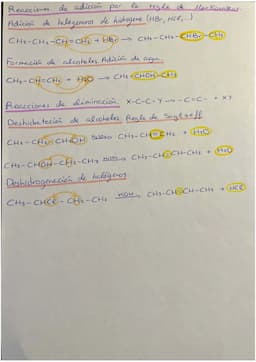 Reacciones de adición por la regla de Markovnikov.
Adición de halogenuros de hidrógeno (HBr, HCl, ...)
CH₃-CH₂-CH=CH₂ + HBr → CH₃-CH₂-CHBr-CH₃
Formación de alcoholes Adición de agua.
CH₃-CH=CH₂ + H₂O → CH₃-CHOH-CH₃
Reacciones de eliminación. X-C-C-Y → -C=C- + XY
Deshidratación de alcoholes Regla de Saytzeff
CH₃-CH₂-CH₂OH → CH₃-CH=CH₂ + H₂O
CH₃-CHOH-CH₂-CH₃ → CH₃-CH=CH-CH₃ + H₂O
Deshidrogenación de halógenos
CH₃-CHCl-CH₂-CH₃ KOH→ CH₃-CH=CH-CH₃ + HCl